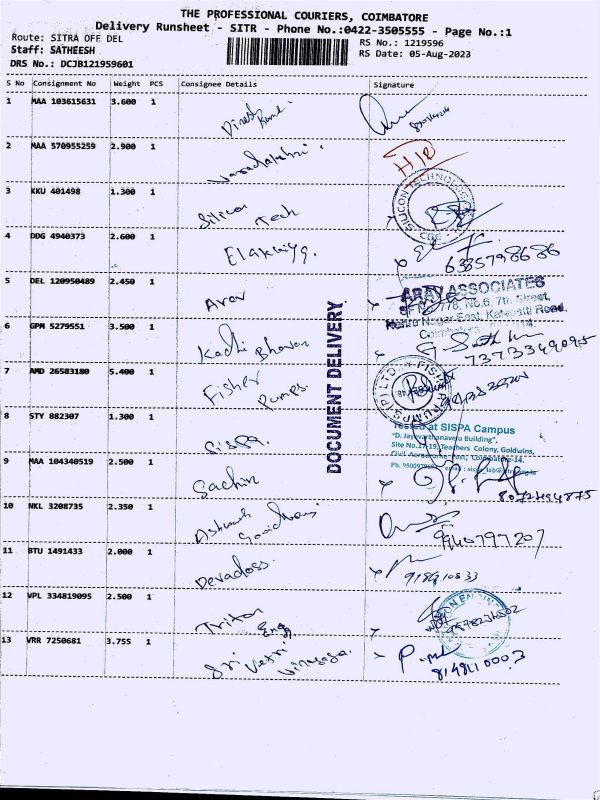 THE PROFESSIONAL COURIERS, COIMBATORE
Delivery Runsheet - SITR - Phone No.:0422-3505555 - Page No.:1
Route: SITRA OFF DEL
RS No.: 1219596
Staff: SATHEESH
RS Date: 05-Aug-2023
DRS No.: DCJB121959601
S No Consignment No Weight PCS Consignee Details Signature
1 MAA 103615631 3.600 1 Dinesh Kumar
2 MAA 570955259 2.900 1 H/D
3 KKU 401498 1.300 1 Silicon Tech
SILICON TECHNOLOGIES
CBE
4 DDG 4940373 2.600 1 Elakkiya.
6335798686
5 DEL 120950489 2.450 1 Arav
ARAV ASSOCIATES
No.6, 7th Street,
Nehru Nagar East, Kalapatti Road,
6 GPM 5279551 3.500 1 Kadhi Bhavan
7373349095
7 AMD 26583180 5.400 1 Fisher Pumps
DOCUMENT DELIVERY
8 STY 882307 1.300 1 Sispa.
Tested at SISPA Campus
Site No.17-19, Teachers Colony, Goldwins,
Civil Aerodrome Post, Coimbatore-14.
9 MAA 104340519 2.500 1 Sachin
8072494875
10 NKL 3208735 2.350 1 Ashwath
9940797207
11 BTU 1491433 2.000 1 Devadoss
12 VPL 334819095 2.500 1 Triton Engg
13 VRR 7250681 3.755 1 Sri Vetri Vinayaga.